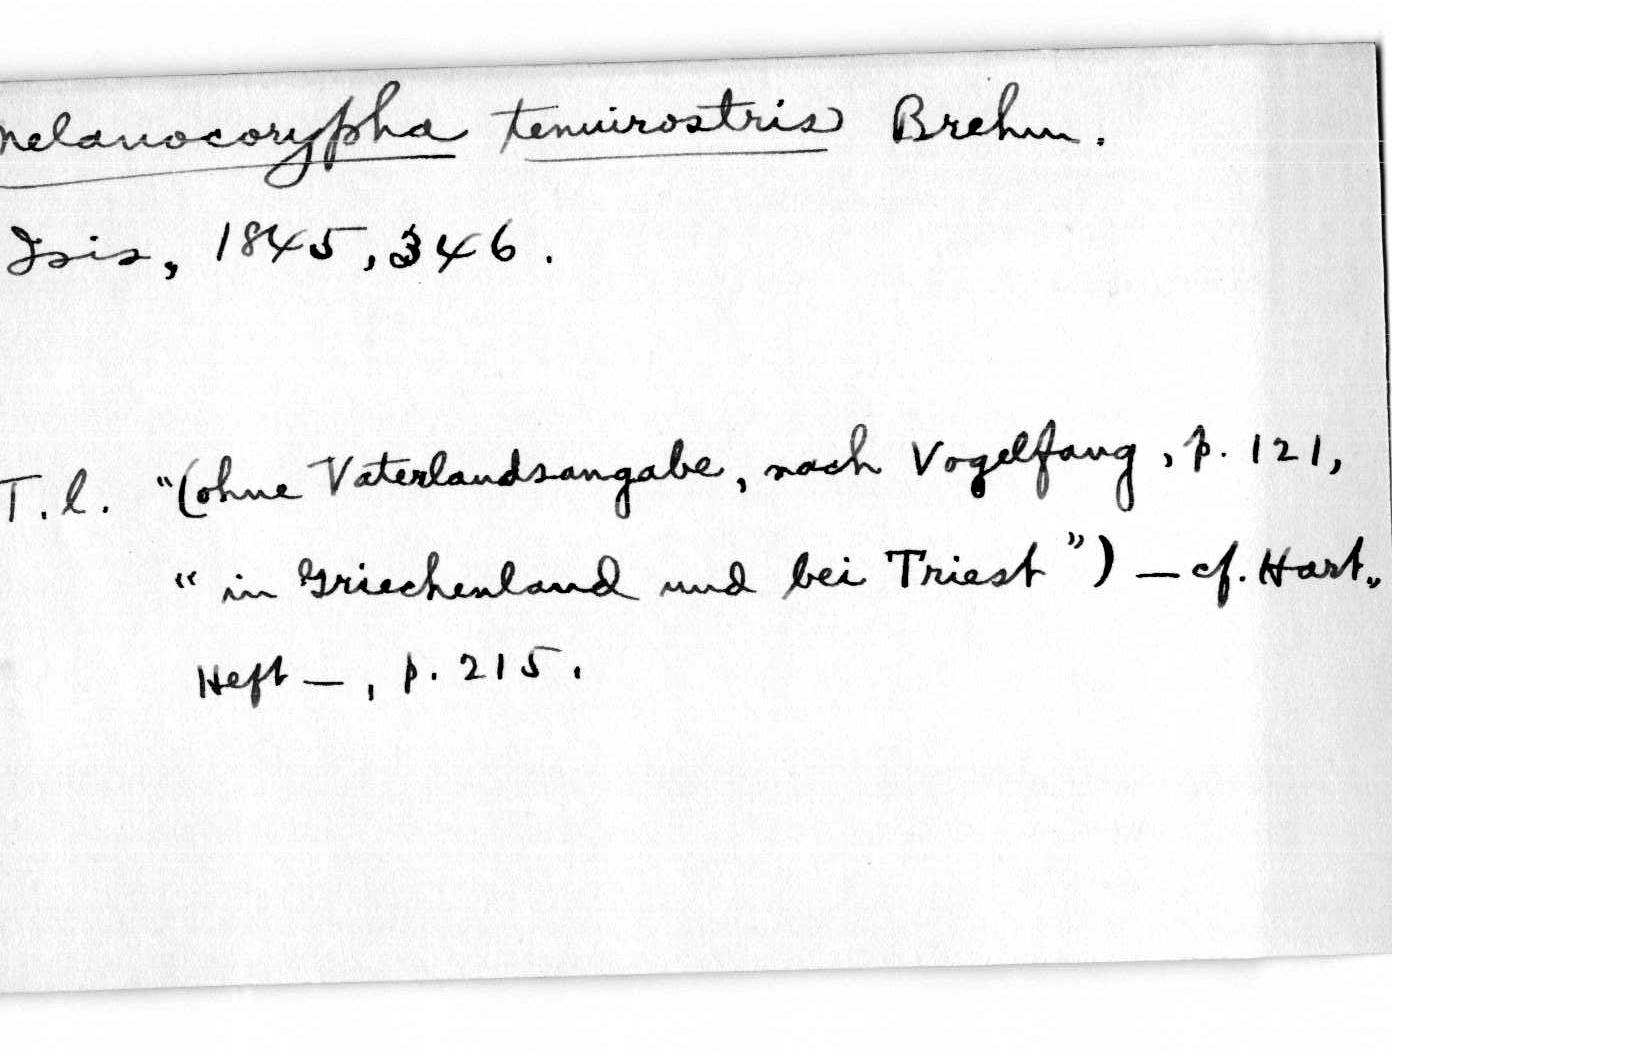 melanocorypha tenuirostris Brehm.
Isis, 1845, 346.
T. l. "(ohne Vaterlandsangabe, nach Vogelfang, p. 121,
"in Griechenland und bei Triest") — cf. Hart.,
Heft —, p. 215.